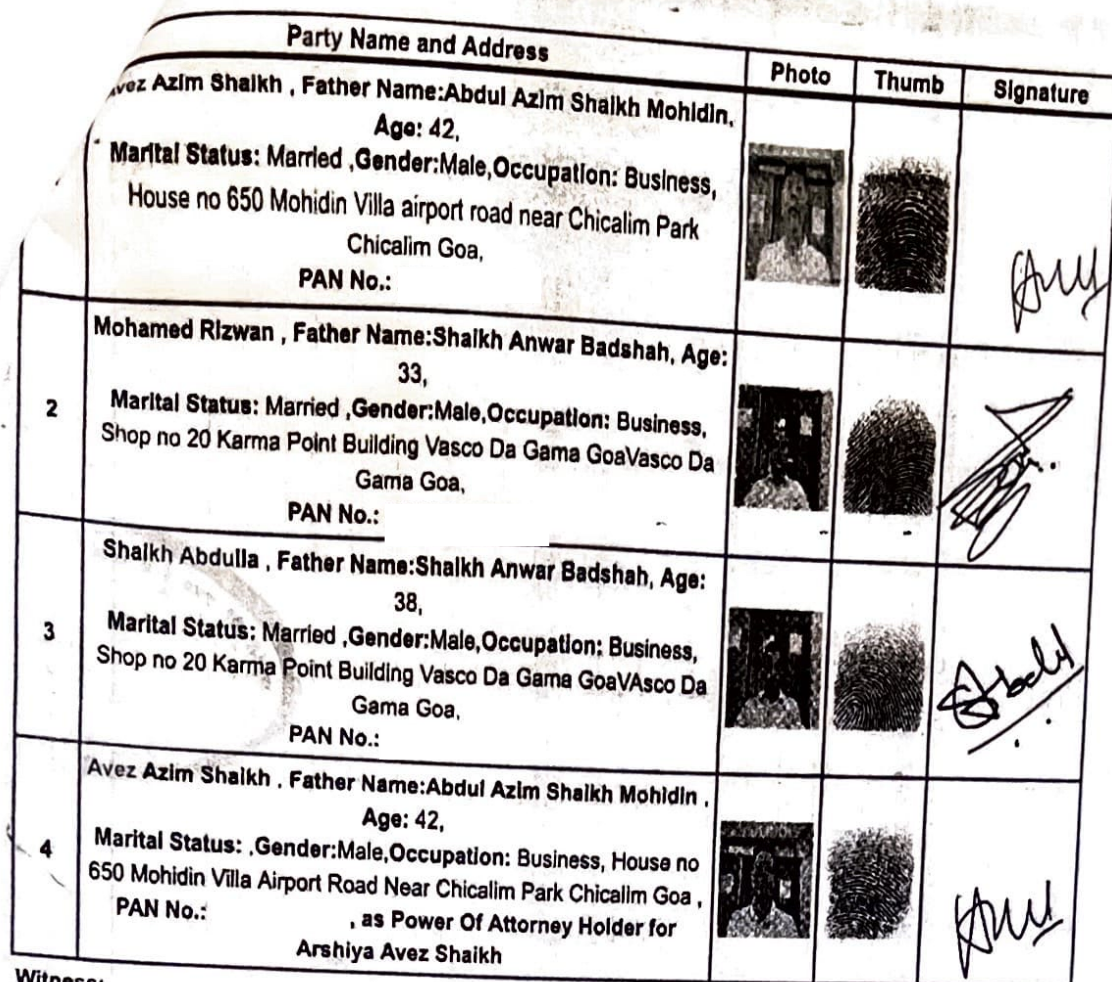 Party Name and Address
Photo
Thumb
Signature
Azim Shaikh , Father Name:Abdul Azim Shaikh Mohidin,
Age: 42,
Marital Status: Married ,Gender:Male,Occupation: Business,
House no 650 Mohidin Villa airport road near Chicalim Park
Chicalim Goa,
PAN No.:
2
Mohamed Rizwan , Father Name:Shaikh Anwar Badshah, Age:
33,
Marital Status: Married ,Gender:Male,Occupation: Business,
Shop no 20 Karma Point Building Vasco Da Gama GoaVasco Da
Gama Goa,
PAN No.:
3
Shaikh Abdulla , Father Name:Shaikh Anwar Badshah, Age:
38,
Marital Status: Married ,Gender:Male,Occupation: Business,
Shop no 20 Karma Point Building Vasco Da Gama GoaVAsco Da
Gama Goa,
PAN No.:
4
Avez Azim Shaikh , Father Name:Abdul Azim Shaikh Mohidin ,
Age: 42,
Marital Status: ,Gender:Male,Occupation: Business, House no
650 Mohidin Villa Airport Road Near Chicalim Park Chicalim Goa ,
PAN No.: , as Power Of Attorney Holder for
Arshiya Avez Shaikh
Witness: